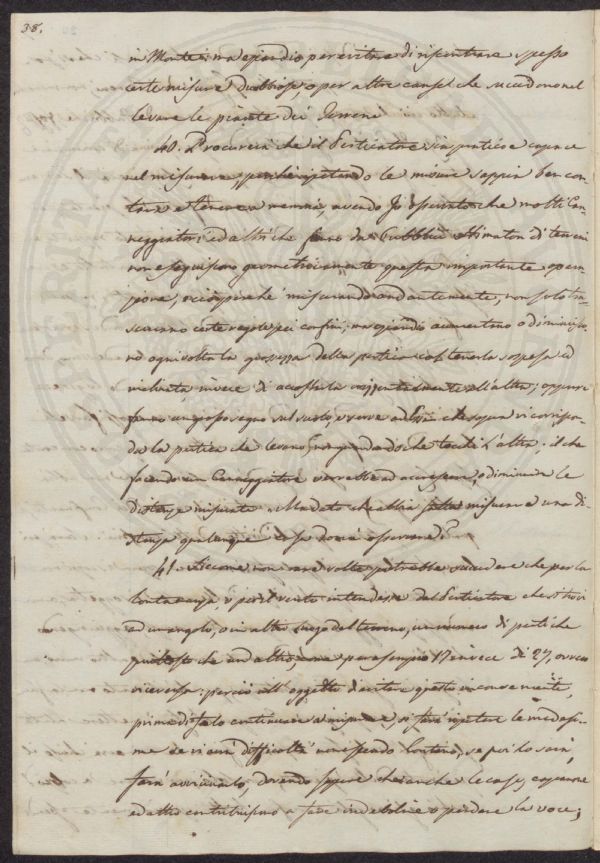 38.
in Monte; ma eziandio per evitare di riscontrare spesso
certe misure dubbiose, o per altre cause che succedono nel
levare le piante dei Terreni
40. Procurerà che il Perticatore sia pratico e capace
nel misurare, perchè ripetendo le misure sappia ben con-
e tenere a memoria, avendo Io che molti Can-
neggiatori, ed altri che fanno da Pubblici Stimatori di terreni
non eseguiscono geometricamente questa importante opera-
zione, perchè misurando andantemente, non solo tra-
scurano certe regole pei confini, ma eziandio aumentano o diminuisco-
no ogni volta la grossezza della pertica col tenerla sospesa ed
invece di accostarla all'altra, oppure
fanno un grosso segno sul suolo, che sopra vi corrispon-
da la pertica che levano, non guardando che tocchi l'altra; il che
facendo un Canneggiatore verrebbe ad accrescere, o diminuire le
distanze misurate. Ma dato che abbia misurare una di-
stanza qualunque cosa dovrà osservare?
41. Siccome non rare volte potrebbe succedere che per la
lontananza, o pel vento intendesse dal Perticatore che si trovi
ad un angolo, o in altro luogo del terreno, un numero di pertiche
piuttosto che un altro, come per esempio 17 invece di 27, ovvero
viceversa: perciò all'oggetto d'evitare questo inconveniente,
prima di farlo continuare a misurare, si farà ripetere le medesi-
me se vi sarà difficoltà non essendo lontano, se poi lo sarà,
farà avvicinarlo, dovendo sapere che anche le case, capanne
ed altro contribuiscono a fare indebolire o perdere la voce;